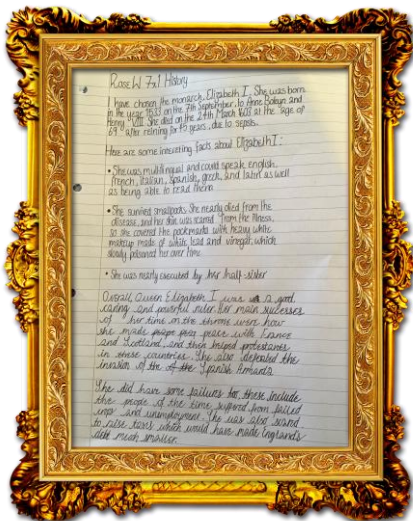 Rose W 7x1 History
I have chosen the monarch, Elizabeth I. She was born
in the year 1533 on the 7th September, to Anne Boleyn and
Henry VIII. She died on the 24th March 1603 at the age of
69 after reining for 45 years, due to sepsis.
Here are some interesting facts about Elizabeth I:
• She was multilingual and could speak english,
french, italian, spanish, greek, and latin as well
as being able to read them
• She survived smallpox. She nearly died from the
disease, and her skin was scarred from the illness,
so she covered the pockmarks with heavy white
makeup made of white lead and vinegar, which
slowly poisoned her over time.
• She was nearly executed by her half-sister
Overall, Queen Elizabeth I was a good,
caring and powerful ruler. Her main successes
of her time on the throne were how
she made peace with France
and Scotland, and then helped protestants
in these countries. She also defeated the
invasion of the Spanish Armada.
She did have some failures too, these include
the people of the time suffered from failed
crops and unemployment. She was also scared
to raise taxes which would have made England's
debt much smaller.